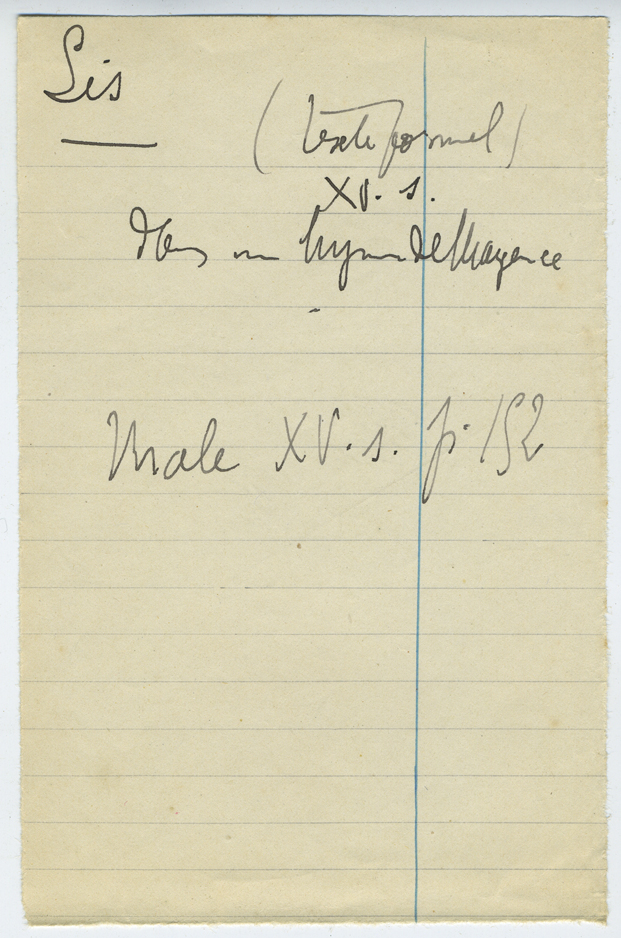 Lis
(texte formel)
XV. s.
Dans un hymne de Mayence
Male XV. s. p. 152